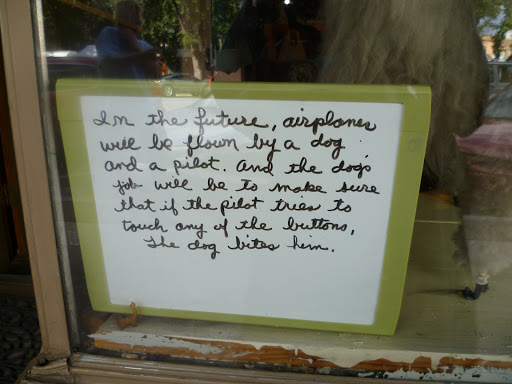 In the future, airplanes
will be flown by a dog
and a pilot. And the dogs
job will be to make sure
that if the pilot tries to
touch any of the buttons,
The dog bites him.